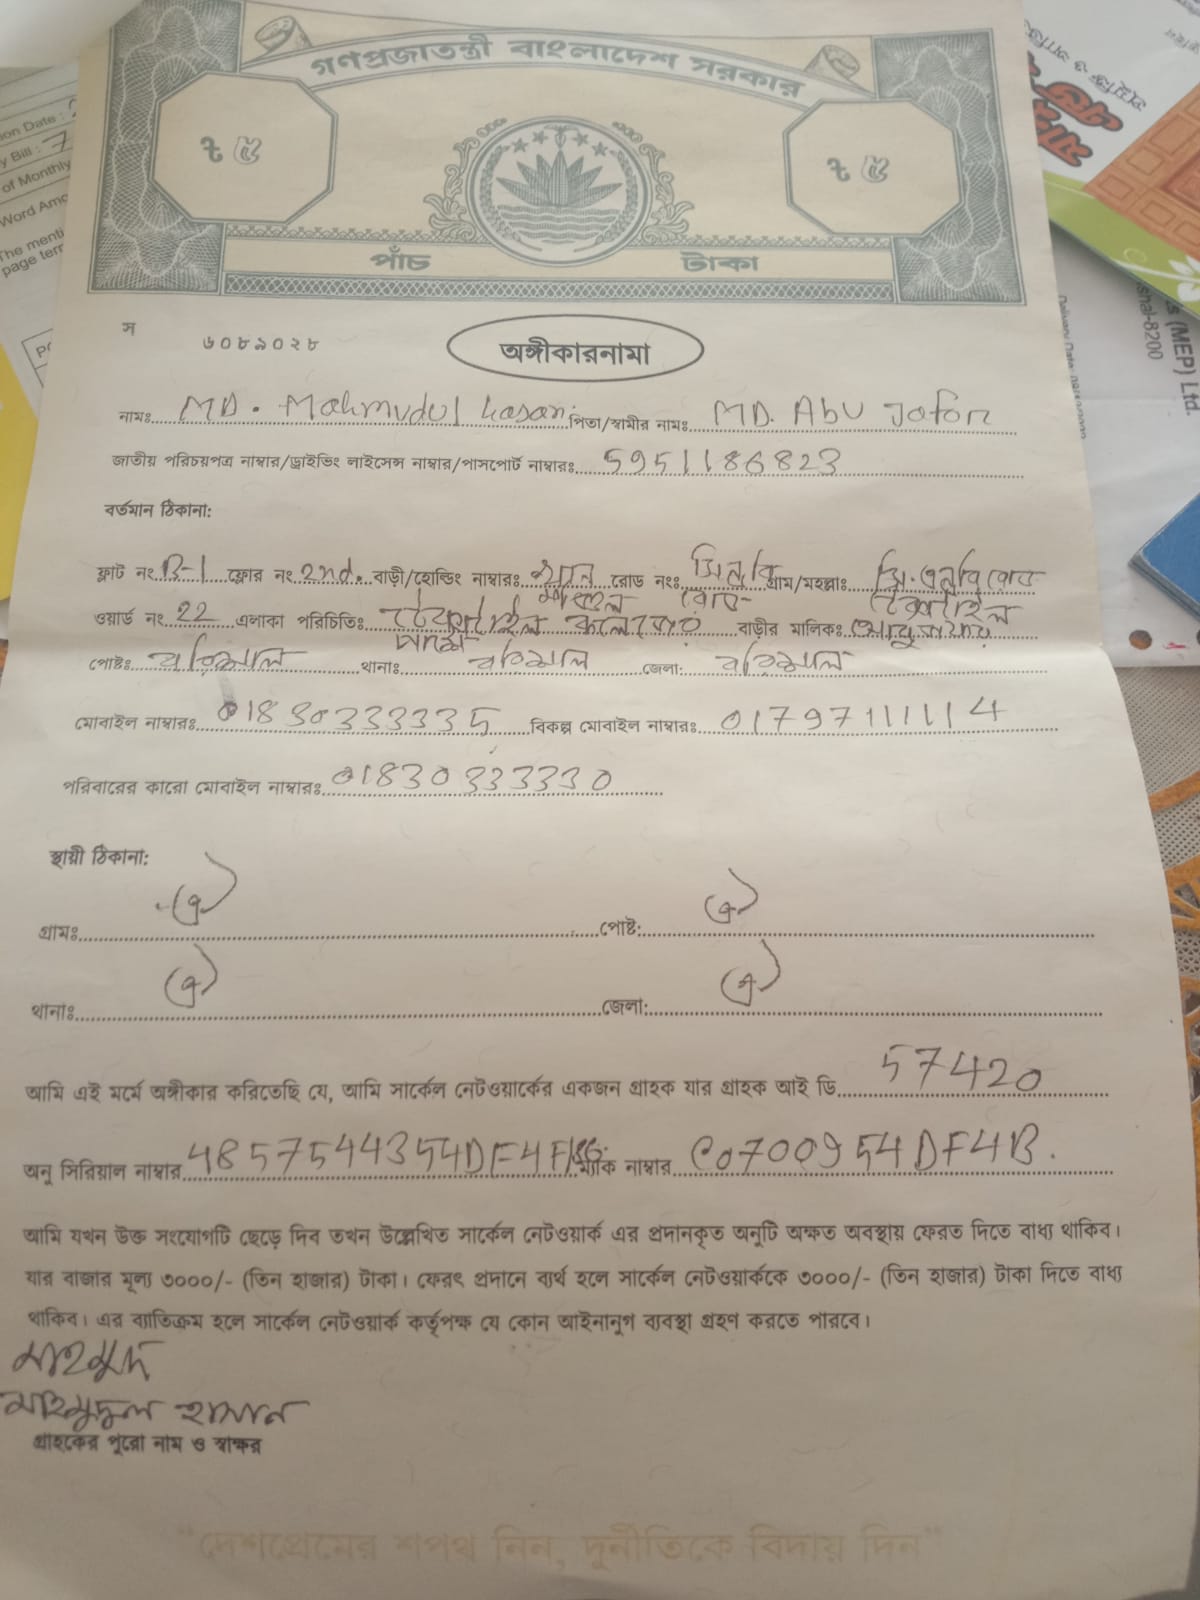 গণপ্রজাতন্ত্রী বাংলাদেশ সরকার
৳ ৫ ৳ ৫
পাঁচ টাকা
স ৬০৮৯০২৮
অঙ্গীকারনামা
নামঃ MD. Mahmudul hasan. পিতা/স্বামীর নামঃ MD. Abu Jafor
জাতীয় পরিচয়পত্র নাম্বার/ড্রাইভিং লাইসেন্স নাম্বার/পাসপোর্ট নাম্বারঃ 5951186823
বর্তমান ঠিকানা:
ফ্লাট নং B-1 ফ্লোর নং 2nd. বাড়ী/হোল্ডিং নাম্বারঃ রোড নংঃ সি এন্ড বি রোড গ্রাম/মহল্লাঃ সি.এন্ড বি রোড
ওয়ার্ড নং 22 এলাকা পরিচিতিঃ টেক্সটাইল কলেজের পাশে বাড়ীর মালিকঃ আবু জাফর
পোষ্টঃ বরিশাল থানাঃ বরিশাল জেলা: বরিশাল
মোবাইল নাম্বারঃ 01830333335 বিকল্প মোবাইল নাম্বারঃ 01797111114
পরিবারের কারো মোবাইল নাম্বারঃ 01830333330
স্থায়ী ঠিকানা:
গ্রামঃ (ঐ) পোষ্ট: (ঐ)
থানাঃ (ঐ) জেলা: (ঐ)
আমি এই মর্মে অঙ্গীকার করিতেছি যে, আমি সার্কেল নেটওয়ার্কের একজন গ্রাহক যার গ্রাহক আই ডি 57420
অনু সিরিয়াল নাম্বার ম্যাক নাম্বার C0700954DF4B.
আমি যখন উক্ত সংযোগটি ছেড়ে দিব তখন উল্লেখিত সার্কেল নেটওয়ার্ক এর প্রদানকৃত অনুটি অক্ষত অবস্থায় ফেরত দিতে বাধ্য থাকিব।
যার বাজার মূল্য ৩০০০/- (তিন হাজার) টাকা। ফেরৎ প্রদানে ব্যর্থ হলে সার্কেল নেটওয়ার্ককে ৩০০০/- (তিন হাজার) টাকা দিতে বাধ্য
থাকিব। এর ব্যতিক্রম হলে সার্কেল নেটওয়ার্ক কর্তৃপক্ষ যে কোন আইনানুগ ব্যবস্থা গ্রহণ করতে পারবে।
মাহমুদ
মাহমুদুল হাসান
গ্রাহকের পুরো নাম ও স্বাক্ষর
"দেশপ্রেমের শপথ নিন, দুর্নীতিকে বিদায় দিন"
on Date :
y Bill : 7
of Monthly
Word Amo
The menti
page terr
s (MEP) Ltd.
shal-8200